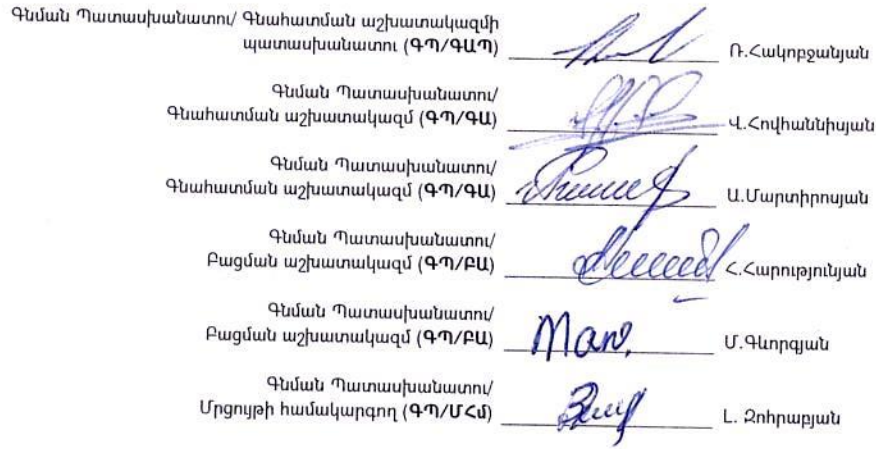 Գնման Պատասխանատու/ Գնահատման աշխատակազմի
պատասխանատու (ԳՊ/ԳԱՊ) Ռ.Հակոբջանյան
Գնման Պատասխանատու/
Գնահատման աշխատակազմ (ԳՊ/ԳԱ) Վ.Հովհաննիսյան
Գնման Պատասխանատու/
Գնահատման աշխատակազմ (ԳՊ/ԳԱ) Ա.Մարտիրոսյան
Գնման Պատասխանատու/
Բացման աշխատակազմ (ԳՊ/ԲԱ) Հ.Հարությունյան
Գնման Պատասխանատու/
Բացման աշխատակազմ (ԳՊ/ԲԱ) Մ.Գևորգյան
Գնման Պատասխանատու/
Մրցույթի համակարգող (ԳՊ/ՄՀմ) Լ. Զոհրաբյան